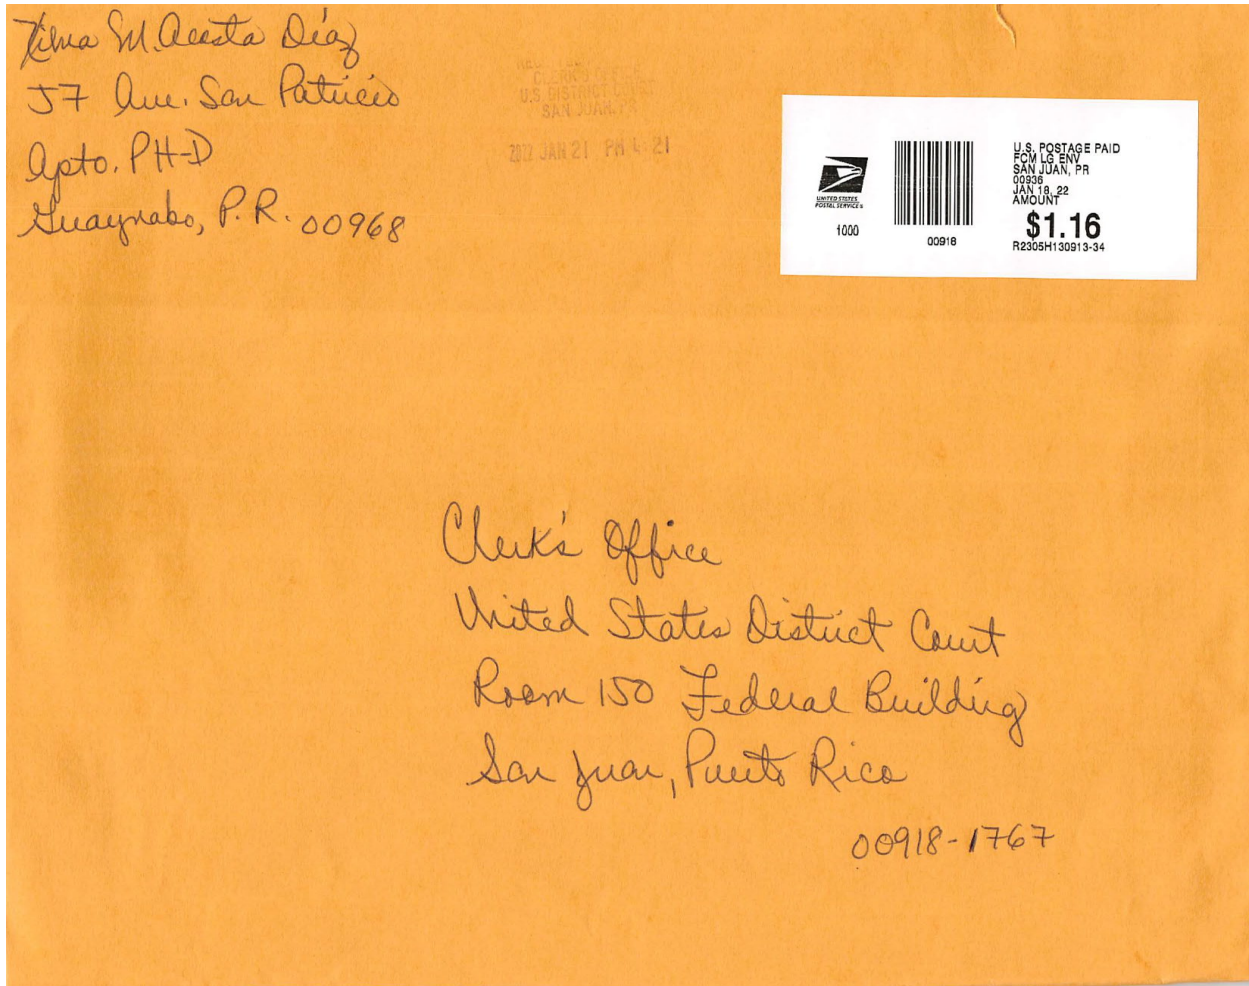 Hilma M. Acosta Díaz
57 Ave. San Patricio
Apto. PH-D
Guaynabo, P.R. 00968
CLERK'S OFFICE
U.S. DISTRICT COURT
SAN JUAN, PR
2022 JAN 21 PM 4:21
UNITED STATES
POSTAL SERVICE®
1000
00918
U.S. POSTAGE PAID
FCM LG ENV
SAN JUAN, PR
00936
JAN 18, 22
AMOUNT
$1.16
R2305H130913-34
Clerk's Office
United States District Court
Room 150 Federal Building
San Juan, Puerto Rico
00918-1767